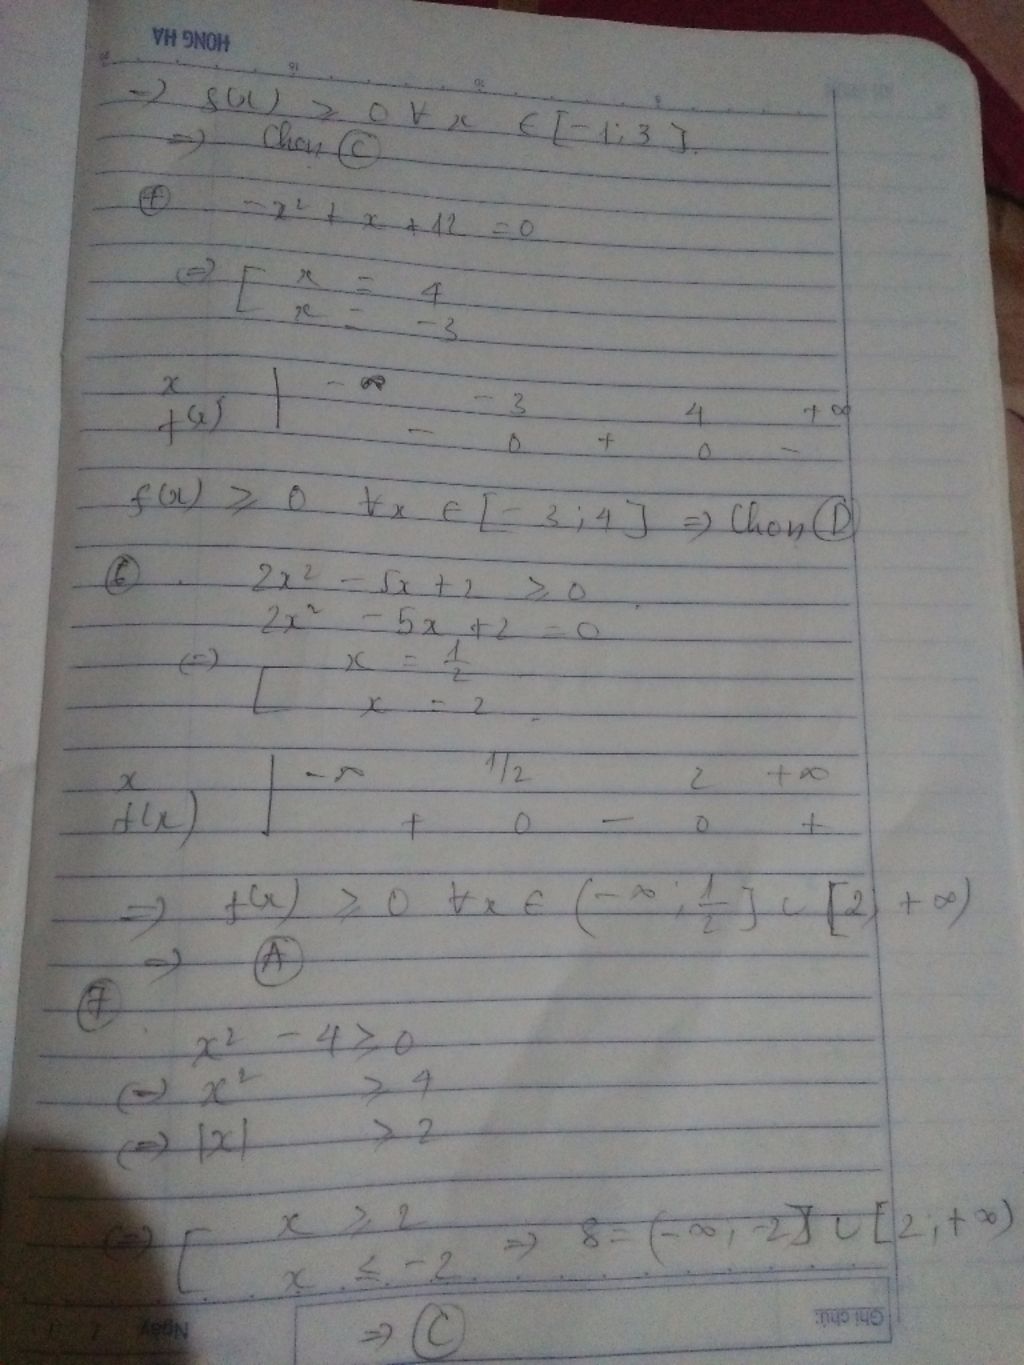 HONG HA
=> f(x) ≥ 0 ∀ x ∈ [-1; 3].
=> Chọn C
-x² + x + 12 = 0
(=) [ x = 4
x = -3
x | -∞ -3 4 +∞
f(x) | - 0 + 0 -
f(x) ≥ 0 ∀x ∈ [-3; 4] => Chọn D
6 2x² - 5x + 2 ≥ 0
2x² - 5x + 2 = 0
(=) [ x = 1/2
x = 2
x | -∞ 1/2 2 +∞
f(x) | + 0 - 0 +
=> f(x) ≥ 0 ∀x ∈ (-∞; 1/2] ∪ [2; +∞)
=> A
7
x² - 4 ≥ 0
(=) x² ≥ 4
(=) |x| ≥ 2
(=) [ x ≥ 2
x ≤ -2 => S = (-∞; -2] ∪ [2; +∞)
=> C
Ngày
Ghi chú: